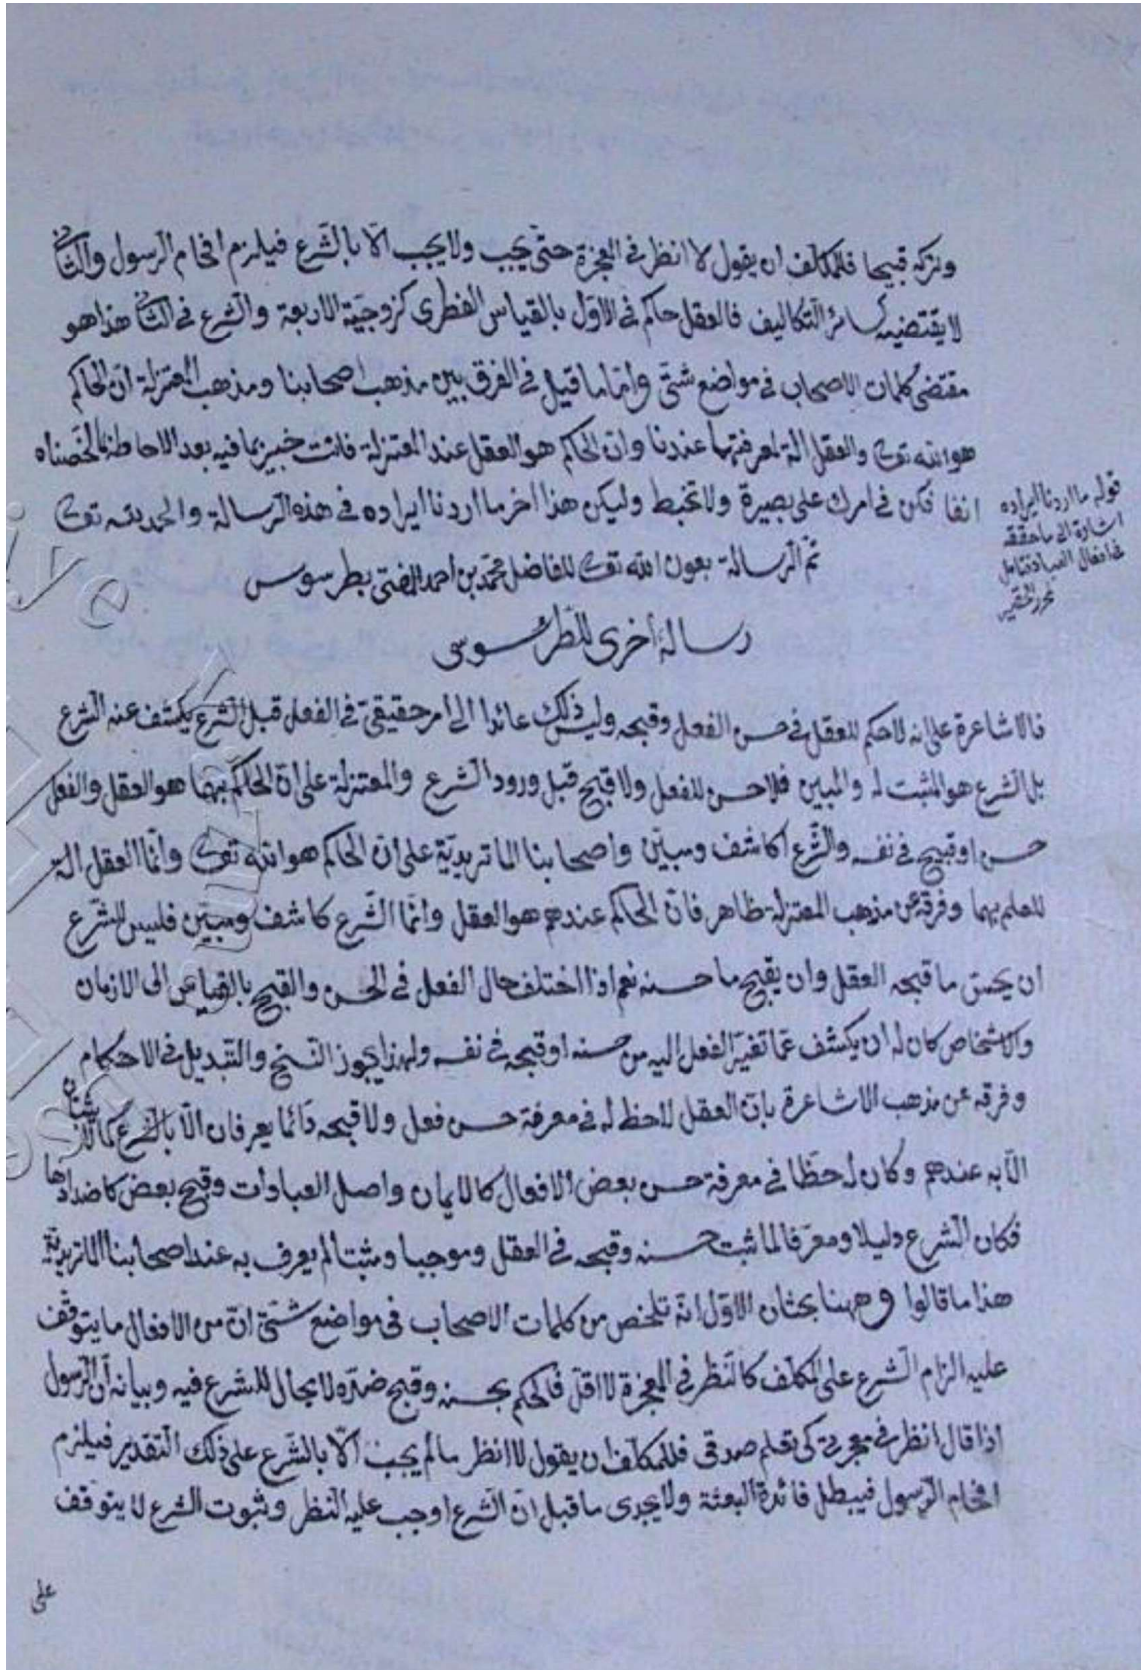 وتركه قبيحا فللمكلف ان يقول لا انظر في المعجزة حتى يجب ولا يجب الا بالشرع فيلزم افحام الرسول والثاني
لا يقتضيه كسائر التكاليف فالعقل حاكم في الاول بالقياس الفطرى كزوجية الاربعة والشرع في الثاني هذا هو
مقتضى كلمات الاصحاب في مواضع شتى واما ما قيل في الفرق بين مذهب اصحابنا ومذهب المعتزلة ان الحاكم
هو الله تعالى والعقل الة لمعرفتهما عندنا وان الحاكم هو العقل عند المعتزلة فانت خبير بما فيه بعد الاحاطة بما لخصناه
انفا فكن في امرك على بصيرة ولا تخبط وليكن هذا اخر ما اردنا ايراده في هذه الرسالة والحمد لله تعالى
قوله ما اردنا ايراده
اشارة الى ما حققه
في افعال العباد فتأمل
لمحرره الحقير
تم الرسالة بعون الله تعالى للفاضل محمد بن احمد المفتى بطرسوس
رسالة أخرى للطرسوسى
فالاشاعرة على انه لا حكم للعقل في حسن الفعل وقبحه وليس ذلك عائدا الى امر حقيقي في الفعل قبل الشرع يكشف عنه الشرع
بل الشرع هو المثبت له والمبين فلا حسن للفعل ولا قبح قبل ورود الشرع والمعتزلة على ان الحاكم بهما هو العقل والفعل
حسن او قبيح في نفسه والشرع كاشف ومبين واصحابنا الماتريدية على ان الحاكم هو الله تعالى وانما العقل الة
للعلم بهما وفرقه عن مذهب المعتزلة ظاهر فان الحاكم عندهم هو العقل وانما الشرع كاشف ومبين فليس للشرع
ان يحسن ما قبحه العقل وان يقبح ما حسنه نعم اذا اختلف حال الفعل في الحسن والقبح بالقياس الى الازمان
والاشخاص كان له ان يكشف عما تغير الفعل اليه من حسنه او قبحه في نفسه ولهذا يجوز النسخ والتبديل في الاحكام
وفرقه عن مذهب الاشاعرة بان العقل لا حظ له في معرفة حسن فعل ولا قبحه دائما يعرفان الا بالشرع كما لا يثبتان
الا به عندهم وكان له حظا في معرفة حسن بعض الافعال كالايمان واصل العبادات وقبح بعض كاضدادها
فكان الشرع دليلا ومعرفا لما ثبت حسنه وقبحه في العقل وموجبا ومثبتا لم يعرف به عند اصحابنا الماتريدية
هذا ما قالوا وههنا بحثان الاول انه تلخص من كلمات الاصحاب في مواضع شتى ان من الافعال ما يتوقف
عليه الزام الشرع على المكلف كالنظر في المعجزة لا اقل فالحكم بحسنه وقبح ضده لا مجال للشرع فيه وبيانه ان الرسول
اذا قال انظر في معجزتي كى تعلم صدقى فللمكلف ان يقول لا انظر ما لم يجب الا بالشرع على ذلك التقدير فيلزم
افحام الرسول فيبطل فائدة البعثة ولا يجدى ما قيل ان الشرع اوجب عليه النظر وثبوت الشرع لا يتوقف
على